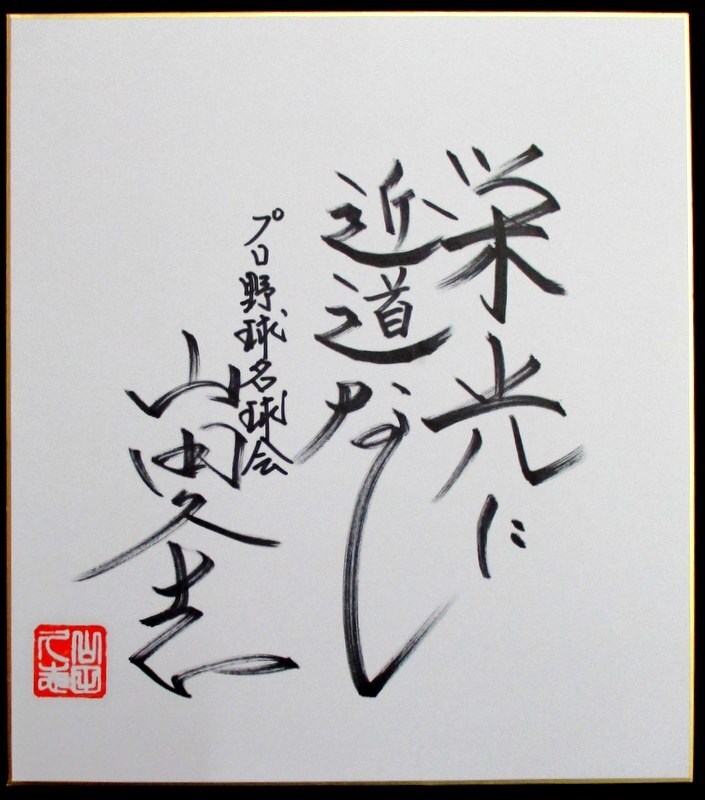 栄光に
近道なし
プロ野球名球会
山田久志
山田久志